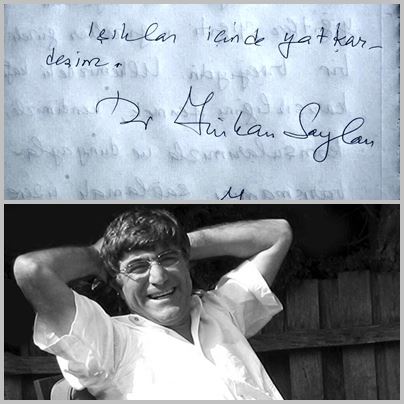 Işıklar içinde yat kar-
deşim.
Dr Türkan Saylan